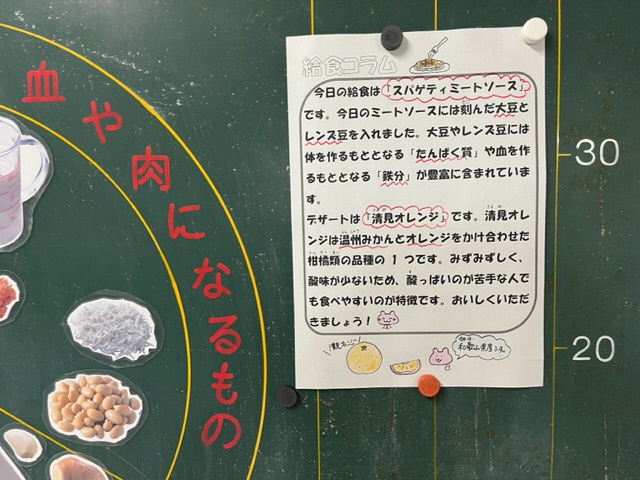 血や肉になるもの
給食コラム
今日の給食は「スパゲティミートソース」
です。今日のミートソースには刻んだ大豆と
レンズ豆を入れました。大豆やレンズ豆には
体を作るもととなる「たんぱく質」や血を作
るもととなる「鉄分」が豊富に含まれていま
す。
デザートは「清見オレンジ」です。清見オレ
ンジは温州みかんとオレンジをかけ合わせた
柑橘類の品種の1つです。みずみずしく、
酸味が少ないため、酸っぱいのが苦手な人で
も食べやすいのが特徴です。おいしくいただ
きましょう！
清見オレンジ
和歌山県産
30
20